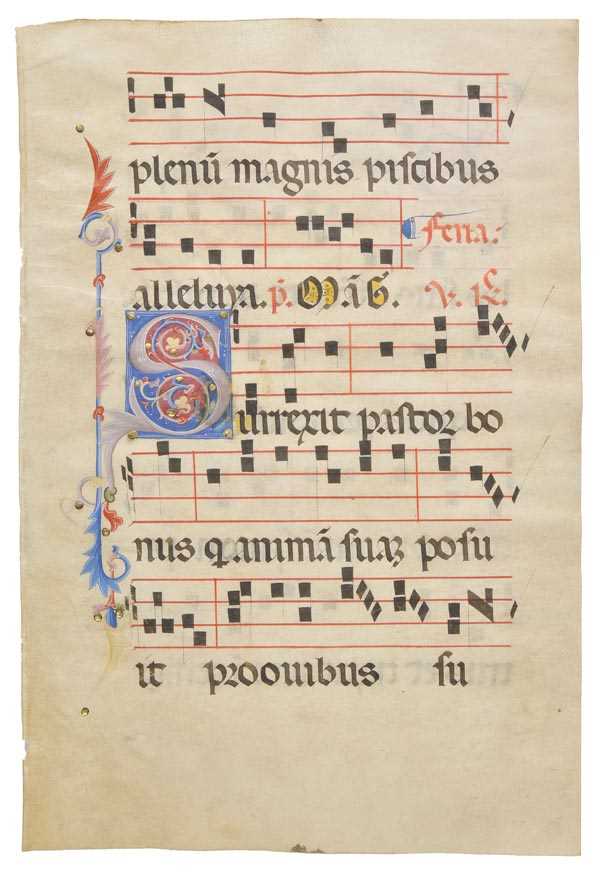 plenū magnis piscibus
feria:
alleluya. p̄. M āG. v. R̄.
Surrexit pastor bo
nus q. animā suaꝫ posu
it pro ovibus su